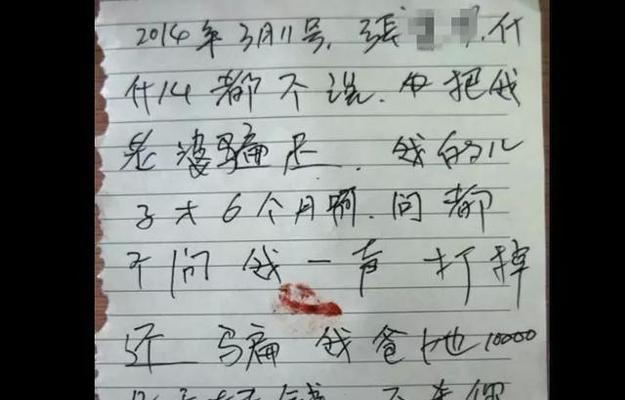 2014年3月11号,张 什
什么都不说. 把我
老婆骗走. 我的儿
子才6个月啊.问都
不问我一声 打掉
还 骗 我爸他10000
钱 不 你